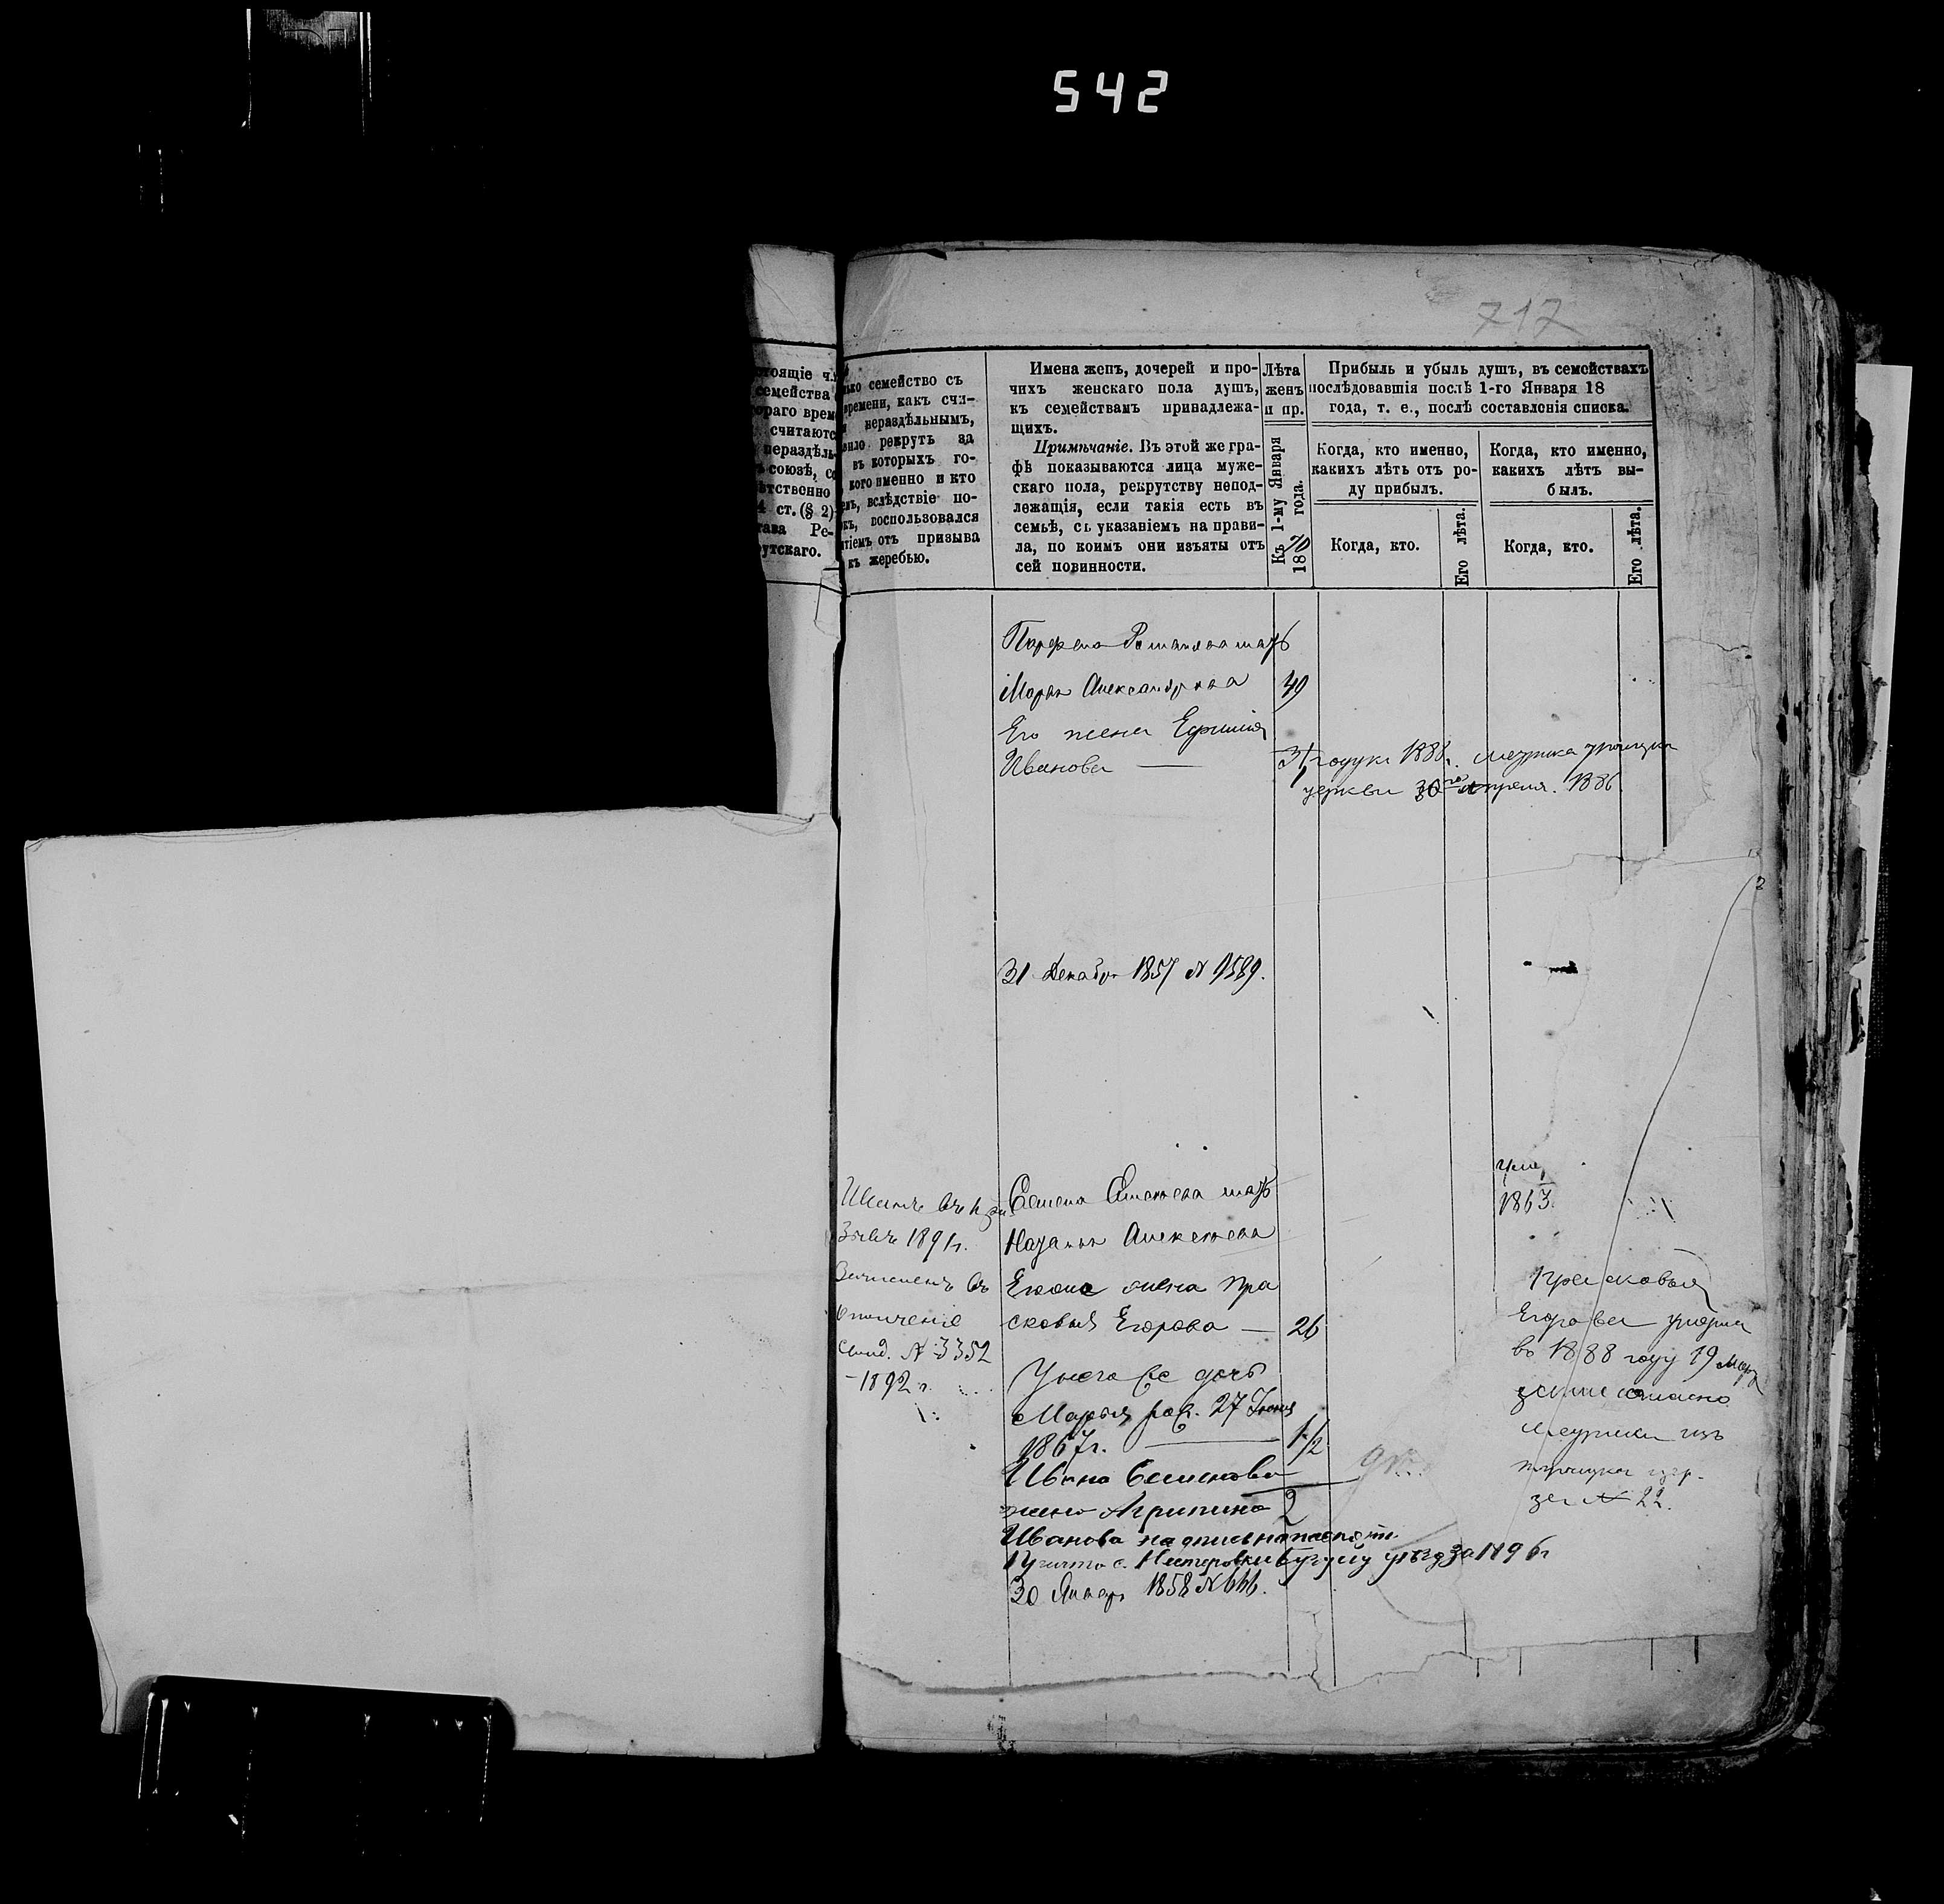 542
717
стоящіе
семейства
считаются
нераздѣль-
союзѣ,
ст. (§ 2)
Ре-
рутскаго.
семейство съ
времени, какъ счи-
нераздѣльнымъ,
рекрутъ за
въ которыхъ го-
кого именно и кто
вслѣдствіе по-
воспользовался
отъ призыва
къ жеребью.
Имена женъ, дочерей и про-
чихъ женскаго пола душъ,
къ семействамъ принадлежа-
щихъ.
Примѣчаніе. Въ этой же гра-
фѣ показываются лица муже-
скаго пола, рекрутству непод-
лежащія, если такія есть въ
семьѣ, съ указаніемъ на прави-
ла, по коимъ они изъяты отъ
сей повинности.
Лѣта
женъ
и пр.
Къ 1-му Января
1870 года.
Прибыль и убыль душъ, въ семействахъ
послѣдовавшія послѣ 1-го Января 18
года, т. е., послѣ составленія списка.
Когда, кто именно,
какихъ лѣтъ отъ ро-
ду прибылъ.
Когда, кто.
Его лѣта.
Когда, кто именно,
какихъ лѣтъ вы-
былъ.
Когда, кто.
Его лѣта.
Парфена Романова мать
Марья Александрова 49
Его жена Ефимія
Иванова — 31 1886 г.
церкви 30го апреля. 1886
31 Декабря 1857 N 9589.
Иванъ въ
1891 г.
Зачисленъ въ
ополченіе
N 3352
-1892 г.
Семена Алексеева мать
Наталья Алексеева
Его жена Пра
сковья Егорова — 26
У него ее дочь
Марья рож. 27 Іюня
1867 г. — 1/2
Ивана Семенова
жена Агрипина 2
Иванова
с. Нестеровки Бугузу уезд за 1896 г
30 Январь 1858 N 646.
умер
1863.
Прасковья
Егорова умерла
въ 1888 году 19 Мар
согласно
метрики изъ
троицка
N 22.